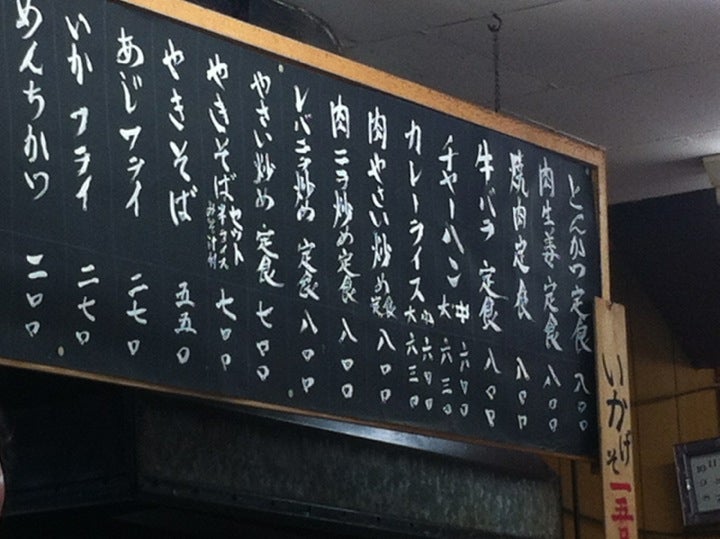 とんかつ定食 八〇〇
肉生姜定食 八〇〇
焼肉定食 八〇〇
牛バラ定食 八〇〇
チャーハン 中 六〇〇
大 六三〇
カレーライス 中 六〇〇
大 六三〇
肉やさい炒め定食 八〇〇
肉ニラ炒め定食 八〇〇
レバニラ炒め 定食 八〇〇
やさい炒め 定食 七〇〇
やきそばセット 七〇〇
半ライス
みそ汁付
やきそば 五五〇
あじフライ 二七〇
いかフライ 二七〇
めんちかつ 二〇〇
いかげそ 一五〇